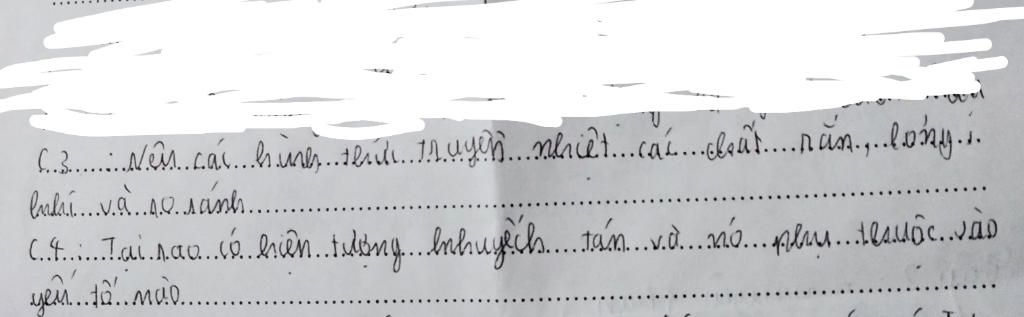 C.3.......: Nêu các hình thức truyền nhiệt các chất rắn, lỏng,
khí và so sánh
C.4.: Tại sao có hiện tượng khuyếch tán và nó phụ thuộc vào
yếu tố nào